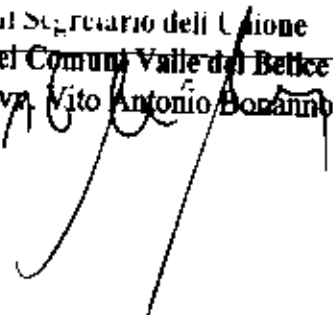 Il Segretario dell'Unione
ei Comuni Valle del Belice
Vito Antonio Bonanno